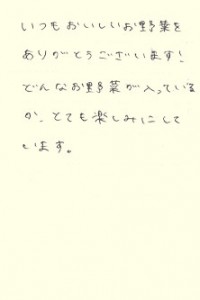 いつもおいしいお野菜を
ありがとうございます!
どんなお野菜が入っている
か、とても楽しみにして
います。